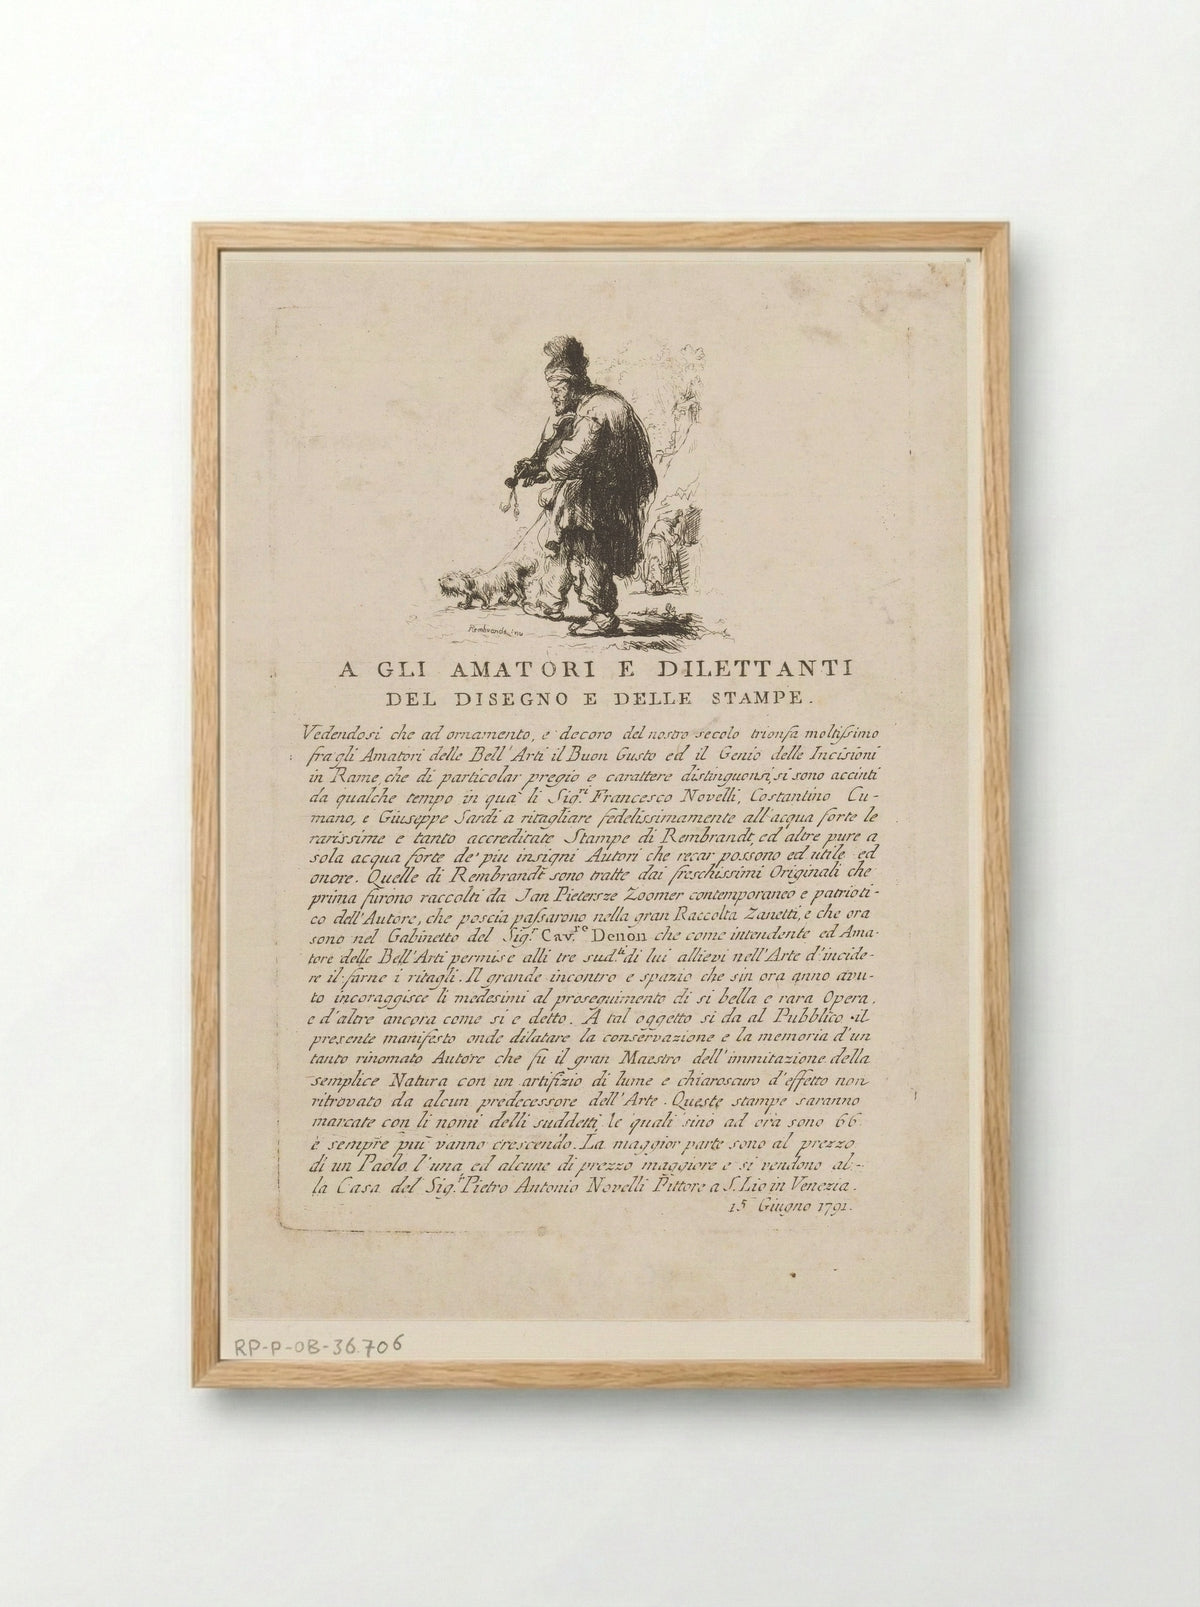 Rembrandt inv
A GLI AMATORI E DILETTANTI
DEL DISEGNO E DELLE STAMPE.
Vedendosi che ad ornamento, e decoro del nostro secolo trionfa moltiſsimo
fra gli Amatori delle Bell' Arti il Buon Gusto ed il Genio delle Incisioni
in Rame, che di particolar pregio e carattere distinguonsi, si sono accinti
da qualche tempo in quà li Sig.ri Francesco Novelli, Costantino Cu-
mano, e Giuseppe Sardi a ritagliare fedelissimamente all'acqua forte le
rarissime e tanto accreditate Stampe di Rembrandt, ed altre pure a
sola acqua forte de' piu insigni Autori che recar possono ed utile ed
onore. Quelle di Rembrandt sono tratte dai freschissimi Originali che
prima furono raccolti da Jan Pietersze Zoomer contemporaneo e patrioti-
co dell'Autore, che poscia paſsarono nella gran Raccolta Zanetti, e che ora
sono nel Gabinetto del Sig.r Cav.re Denon che come intendente ed Ama-
tore delle Bell'Arti permise alli tre sud.ti di lui allievi nell'Arte d'incide-
re il farne i ritagli. Il grande incontro e spazio che sin ora anno avu-
to incoraggisce li medesimi al proseguimento di si bella e rara Opera,
e d'altre ancora come si e detto. A tal oggetto si da al Pubblico il
presente manifesto onde dilatare la conservazione e la memoria d'un
tanto rinomato Autore che fù il gran Maestro dell'immitazione della
semplice Natura con un artifizio di lume e chiaroscuro d'effetto non
ritrovato da alcun predecessore dell'Arte. Queste stampe saranno
marcate con li nomi delli suddetti, le quali sino ad ora sono 66.
e sempre piu vanno crescendo. La maggior parte sono al prezzo
di un Paolo l'una, ed alcune di prezzo maggiore e si vendono al-
la Casa del Sig.r Pietro Antonio Novelli Pittore a S. Lio in Venezia.
15 Giugno 1791.
RP-P-OB-36.706